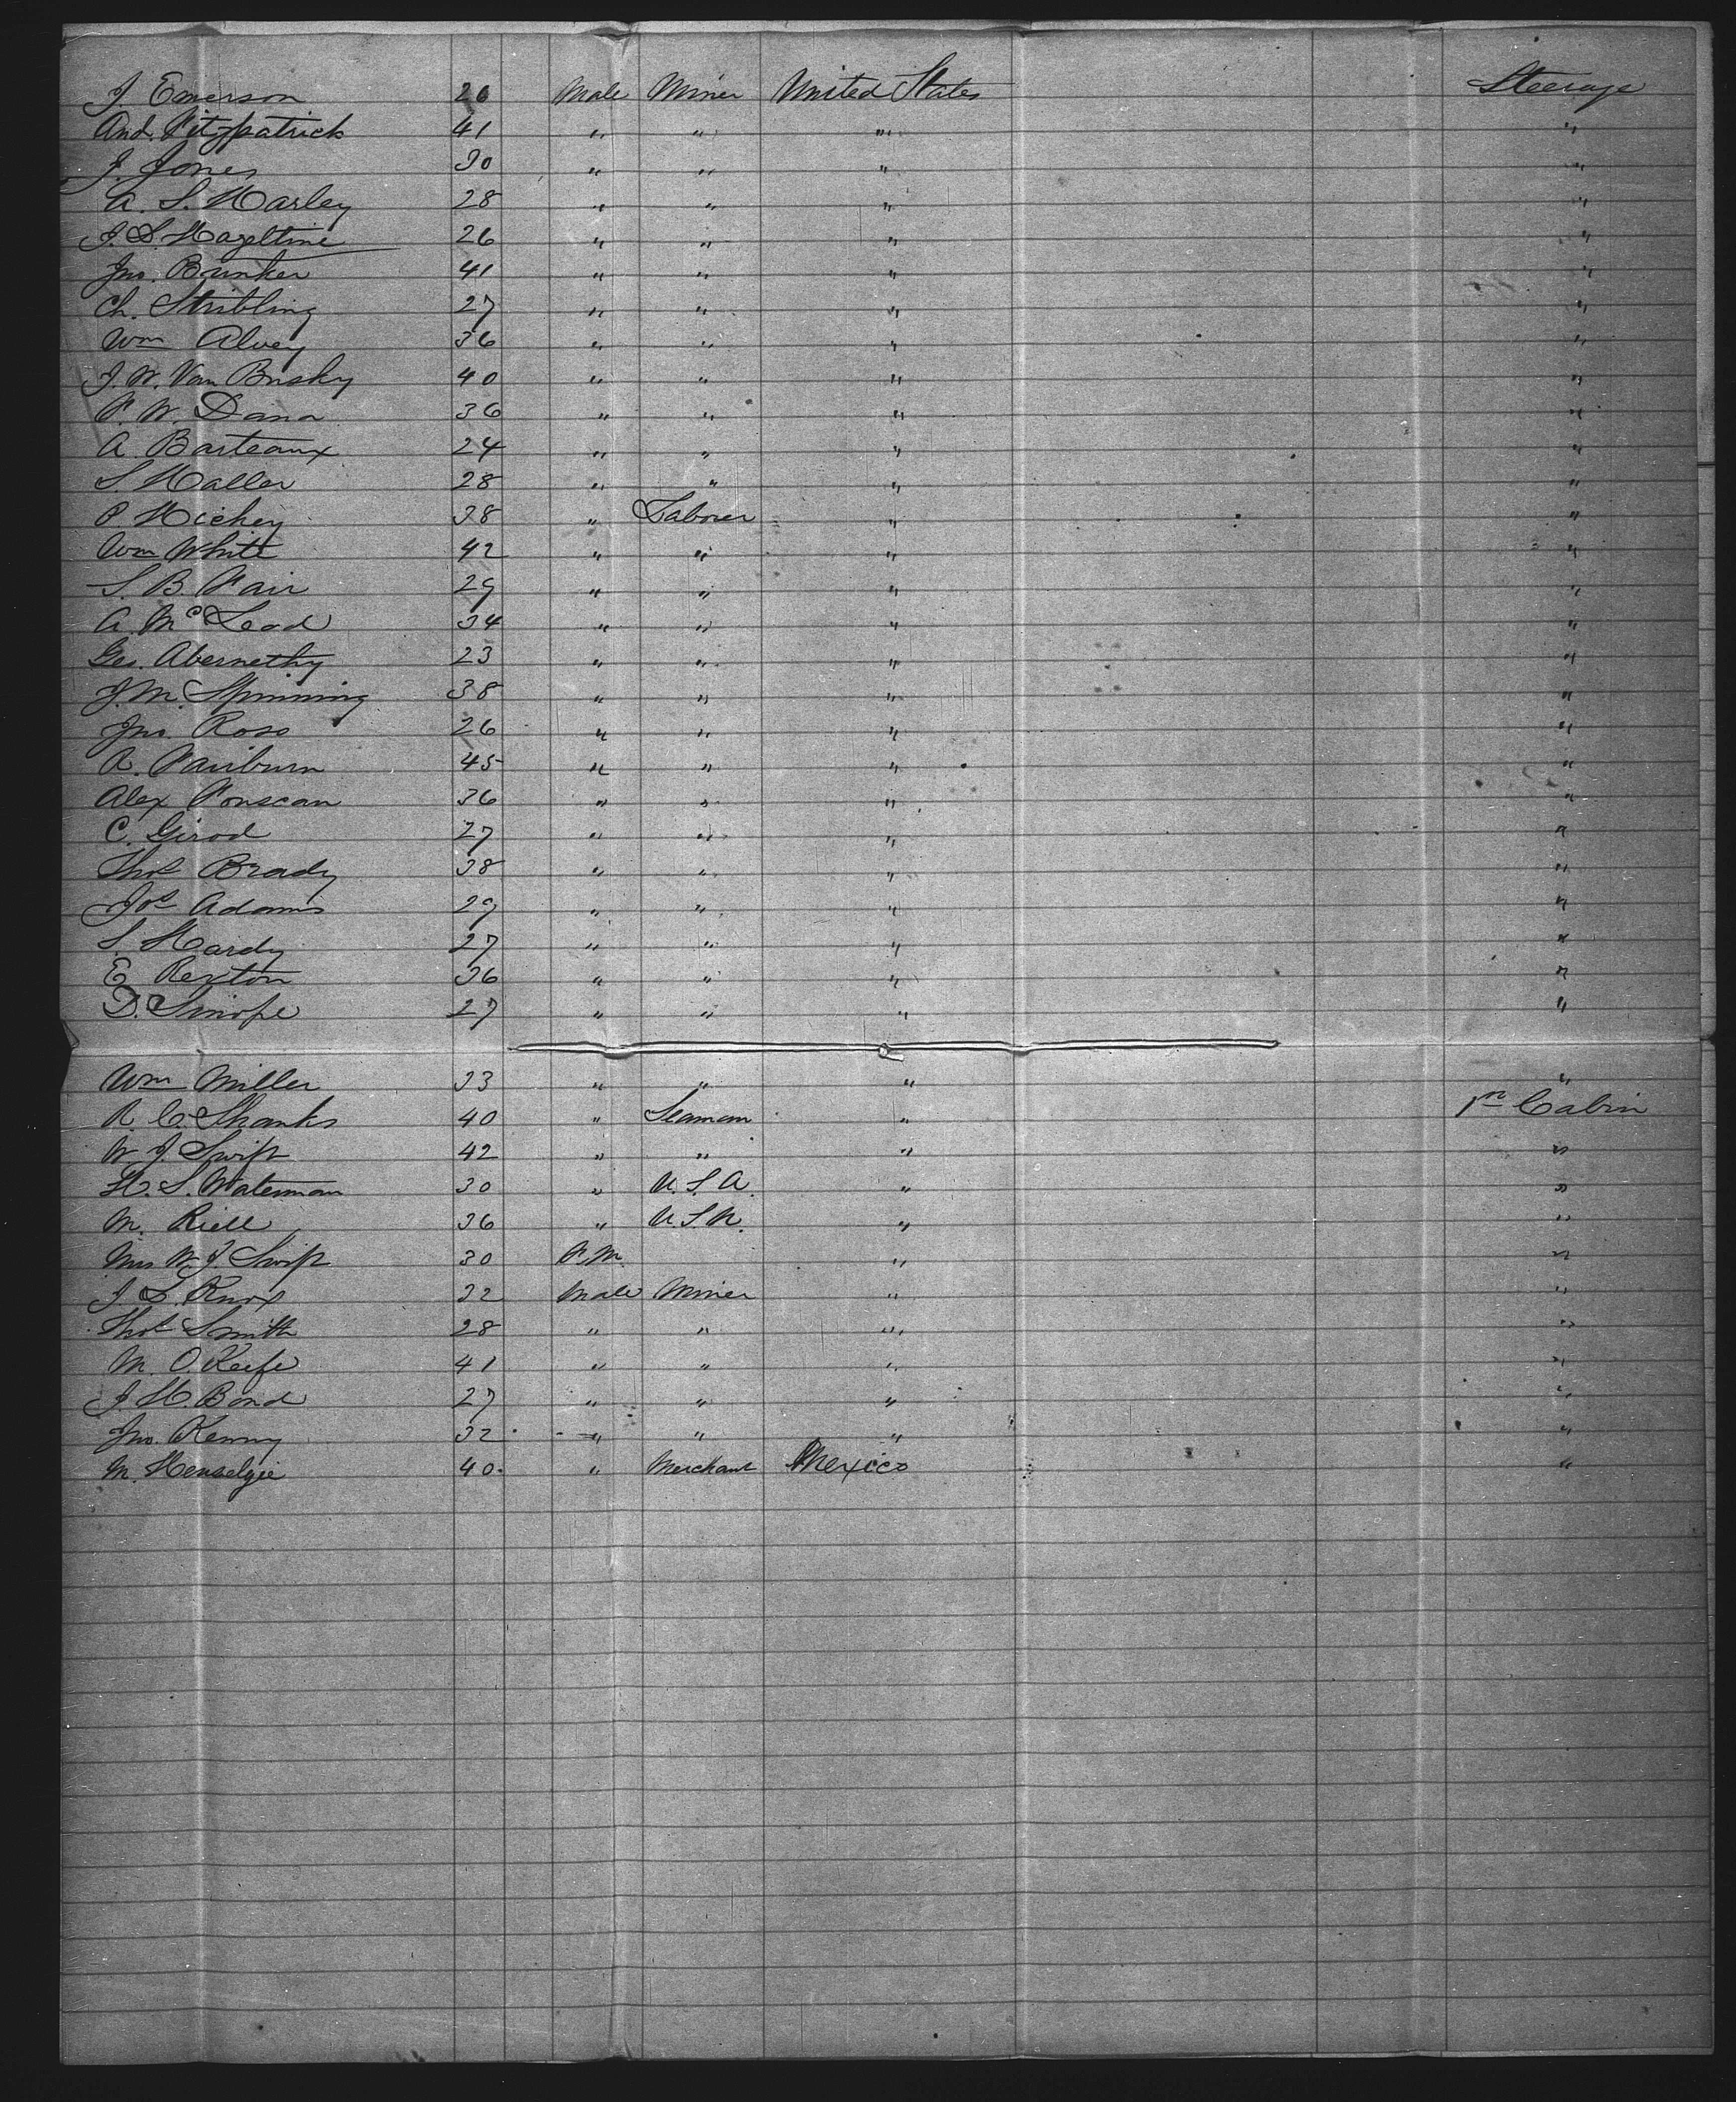 J. Emerson 26 Male Miner United States Steerage
And. Fitzpatrick 41 " " " "
J. Jones 30 " " " "
A. S. Harley 28 " " " "
J. S. Hazeltine 26 " " " "
Jno. Bunker 41 " " " "
Ch. Stribling 27 " " " "
Wm Alvey 36 " " " "
J. W. Van Busky 40 " " " "
F. W. Dana 36 " " " "
A Barteaux 24 " " " "
S. Haller 28 " " " "
P Hickey 38 " Laborer " "
Wm White 42 " " " "
S. B. Fair 29 " " " "
A. McLeod 34 " " " "
Geo. Abernethy 23 " " " "
J. M. Spinning 38 " " " "
Jno. Ross 26 " " " "
R. Fairburn 45 " " " "
Alex 36 " " " "
C. Girod 27 " " " "
Thos Brady 38 " " " "
Jos Adams 29 " " " "
S. Hardy 27 " " " "
E Rexton 36 " " " "
D. 27 " " " "
Wm Miller 33 " " " "
R. C. Shanks 40 " Seaman " 1st Cabin
W. J. Swift 42 " " " "
H. S. Waterman 30 " U.S.A. " "
M. Riell 36 " U.S.N. " "
Mrs W. J. Swift 30 F.M. " "
J S. Knox 32 Male Miner " "
Thos Smith 28 " " " "
M. O.Keefe 41 " " " "
J H. Bond 27 " " " "
Jno. Kenny 32 " " " "
M. 40 " Merchant Mexico "